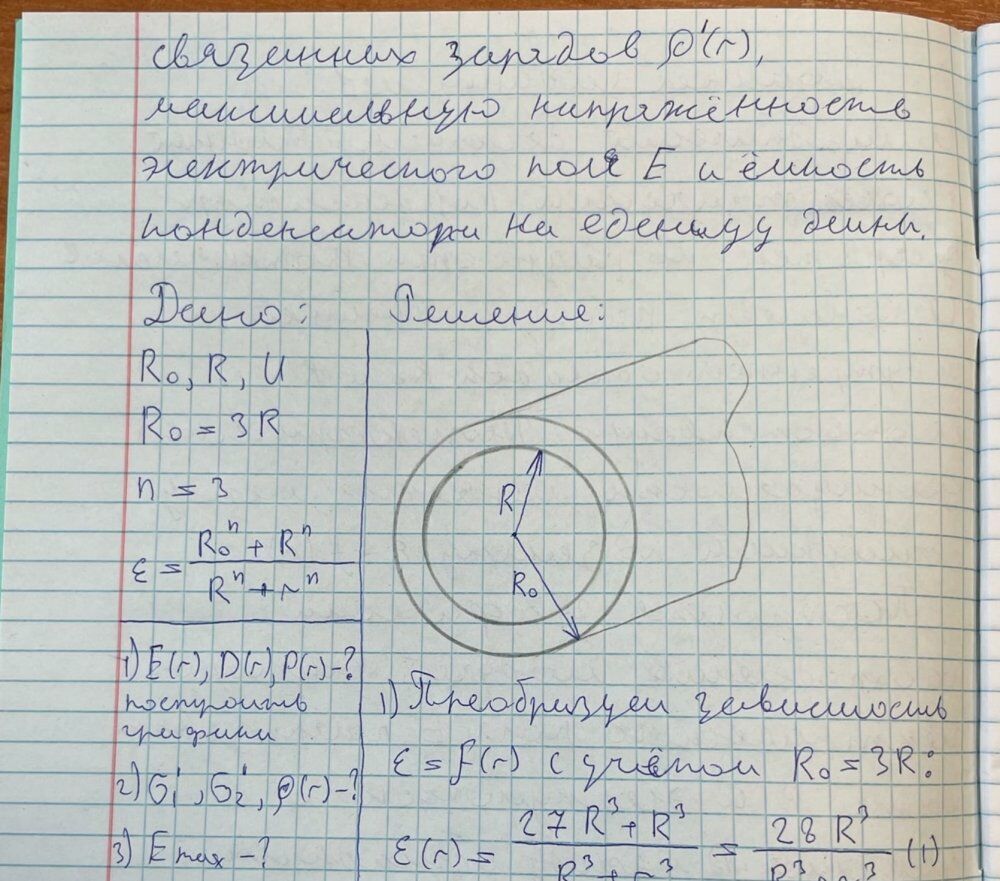 связанных зарядов ρ'(r),
максимальную напряжённость
электрического поля E и ёмкость
конденсатора на еденицу длины.
Дано: Решение:
R₀, R, U
R₀ = 3R
n = 3
ε = (R₀ⁿ + Rⁿ) / (Rⁿ + rⁿ)
R
R₀
1) E(r), D(r), P(r) - ?
построить
графики
2) σ₁', σ₂', ρ(r) - ?
3) E max - ?
1) Преобразуем зависимость
ε = f(r) с учётом R₀ = 3R:
ε(r) = (27R³ + R³) / (R³ + r³) = 28R³ / (R³ + r³) (1)